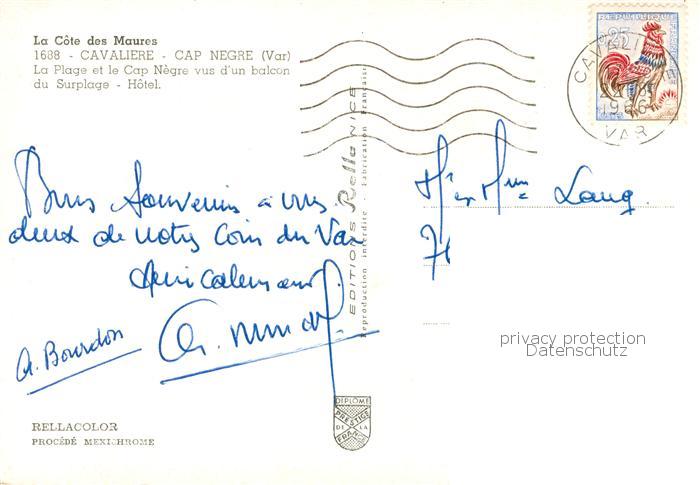 La Côte des Maures
1688 - CAVALIERE - CAP NEGRE (Var)
La Plage et le Cap Nègre vus d'un balcon
du Surplage - Hôtel.
Bons Souvenirs à vous
deux de notre Coin du Var
Amicalement
A. Bourdon
RELLACOLOR
PROCÉDÉ MEXICHROME
EDITIONS Rella NICE
Reproduction interdite - Fabrication Française
DIPLOME
PRESTIGE
DE LA
FRANCE
0,25
CAVALIERE
1966
VAR
Mr et Mme Lang
privacy protection
Datenschutz